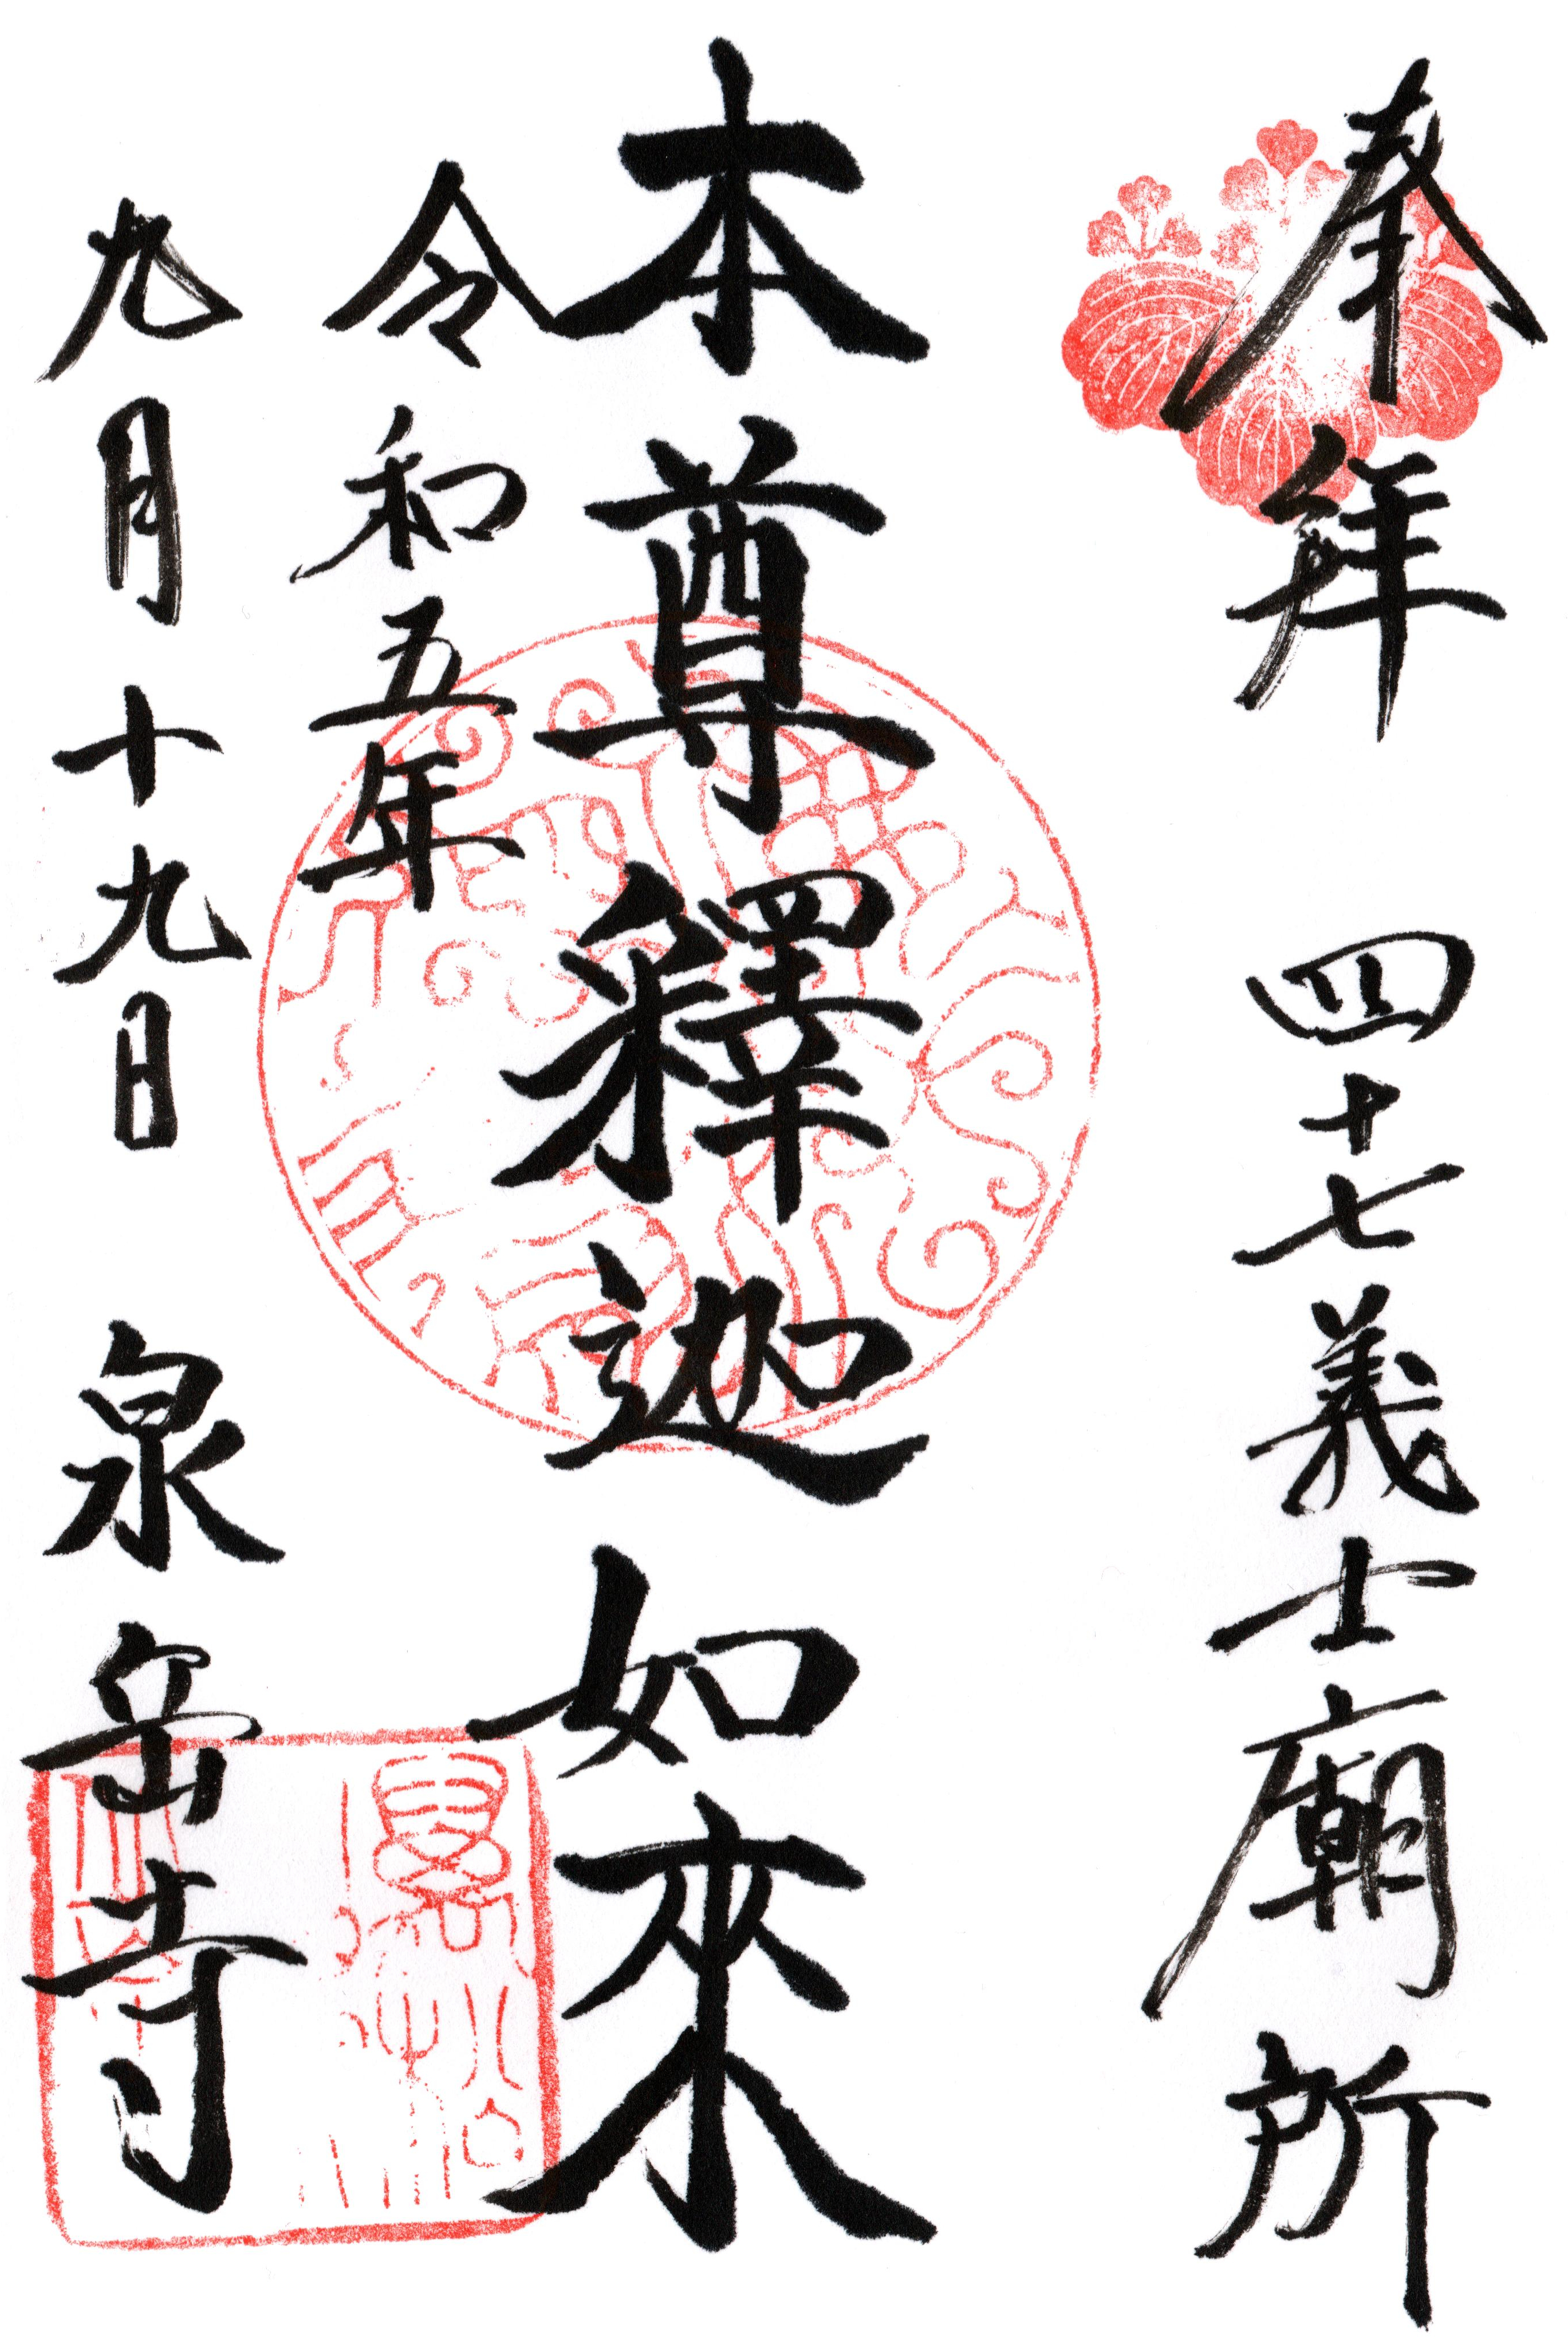 奉拜 四十七義士廟所
本尊釋迦如來
令和五年
九月十九日 泉岳寺